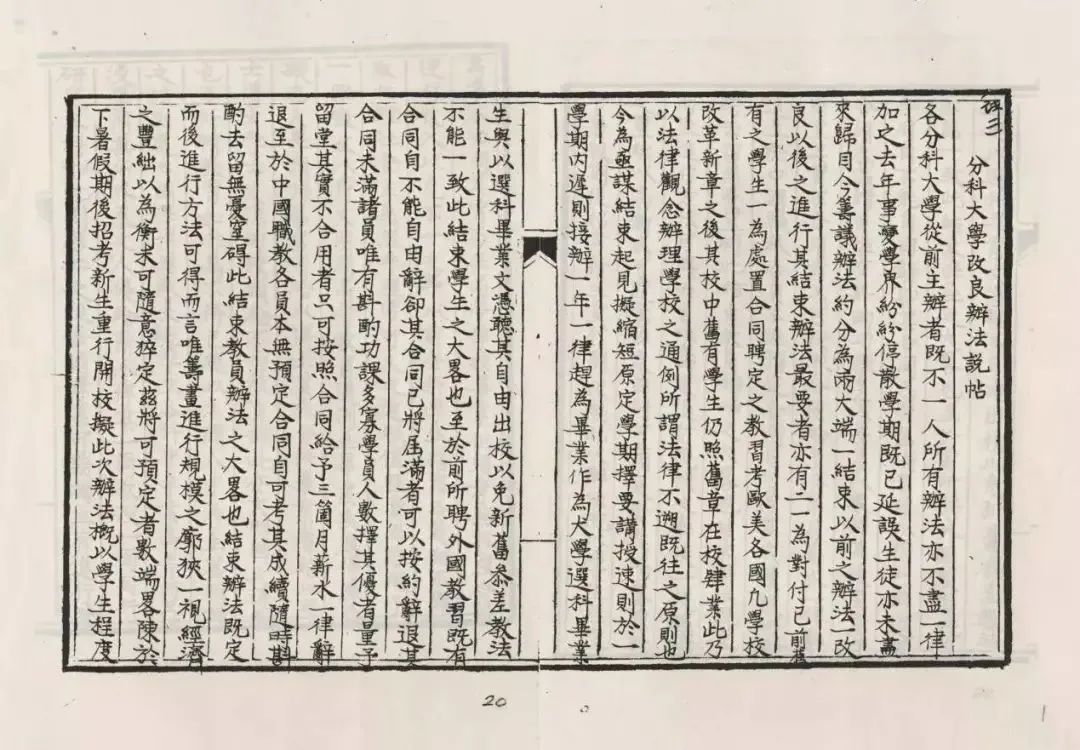 分科大學改良辦法說帖
各分科大學從前主辦者既不一人所有辦法亦不盡一律
加之去年事變學界紛紛停散學期既已延誤生徒亦未盡
來歸目今籌議辦法約分為兩大端一結束以前之辦法一改
良以後之進行其結束辦法最要者亦有二一為對付已前舊
有之學生一為處置合同聘定之教習考歐美各國凡學校
改革新章之後其校中舊有學生仍照舊章在校肄業此乃
以法律觀念辦理學校之通例所謂法律不溯既往之原則也
今為亟謀結束起見擬縮短原定學期擇要講授速則於一
學期內遲則接辦一年一律趕為畢業作為大學選科畢業
生與以選科畢業文憑聽其自由出校以免新舊參差教法
不能一致此結束學生之大畧也至於前所聘外國教習既有
合同自不能自由辭卻其合同已將屆滿者可以按約辭退其
合同未滿諸員唯有斟酌功課多寡學員人數擇其優者量予
留堂其實不合用者只可按照合同給予三箇月薪水一律辭
退至於中國職教各員本無預定合同自可考其成績隨時斟
酌去留無憂窒碍此結束教員辦法之大畧也結束辦法既定
而後進行方法可得而言唯籌畫進行規模之廓狹一視經濟
之豐絀以為衡未可隨意猝定茲將可預定者數端畧陳於
下暑假期後招考新生重行開校擬此次辦法概以學生程度
20